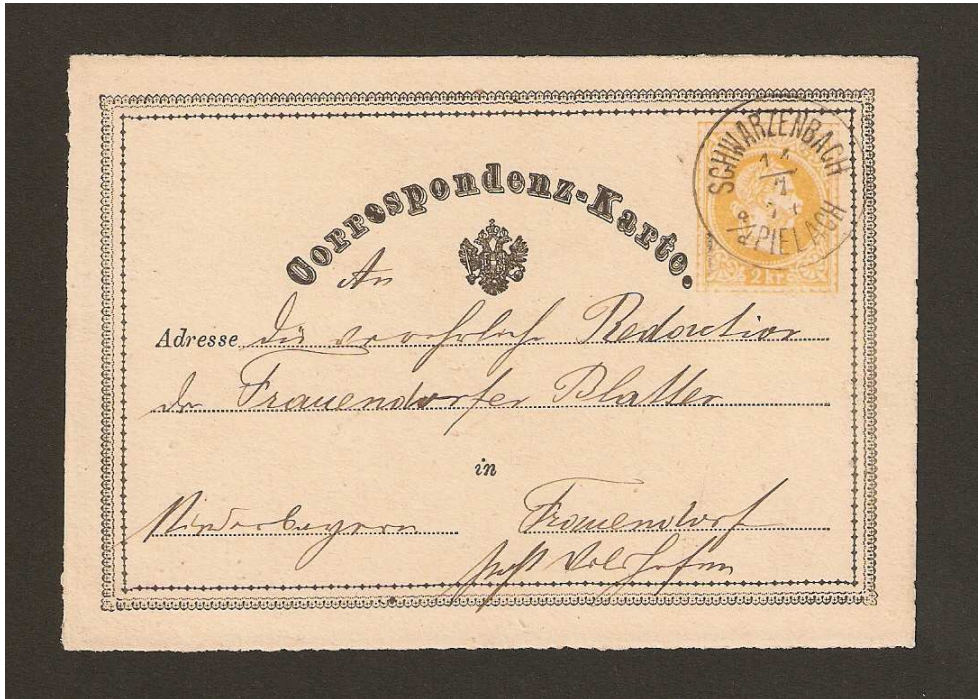 Correspondenz-Karte.
SCHWARZENBACH
a/d PIELACH
2 Kr.
An
Adresse die verehrliche Redaction
der Frauendorfer Blatter
in
Niederbayern Frauendorf
post Vilshofen